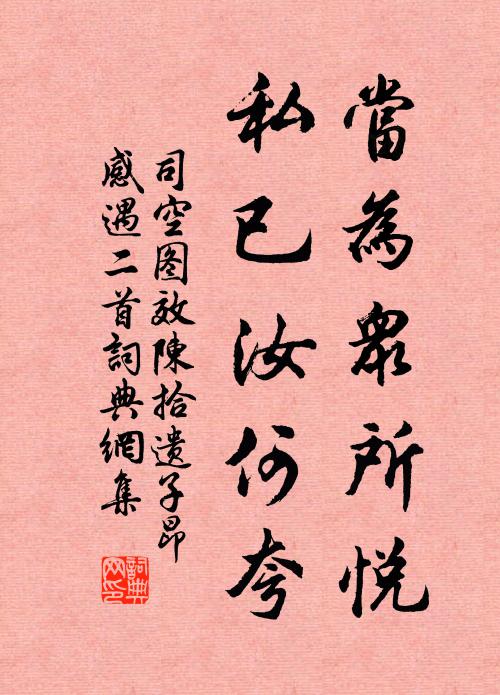 當為衆所悦
私已汝何夸
司空图效陳拾遗子昂
感遇二首詞典網集
詞典
网印